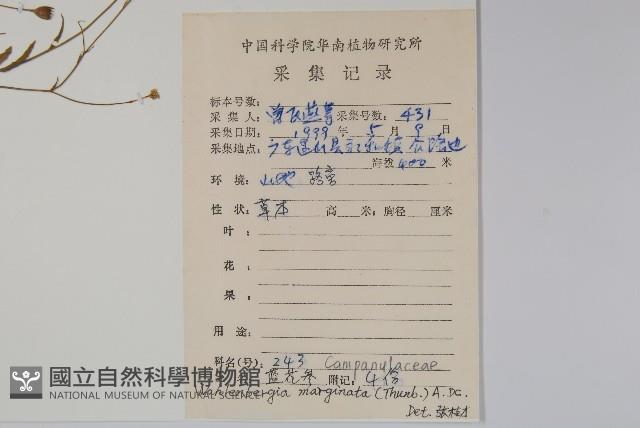 中国科学院华南植物研究所
采集记录
标本号数：
采集人：曾飞燕等 采集号数：431
采集日期：1999年5月9日
采集地点：
海拔400米
环境：山地 路旁
性状：草本 高 米；胸径 厘米
叶：
花：
果：
用途：
科名(号)：243 Campanulaceae
蓝花参 附记：4份
Wahlenbergia marginata (Thunb.) A. DC.
Det. 张桂才
國立自然科學博物館
NATIONAL MUSEUM OF NATURAL SCIENCE